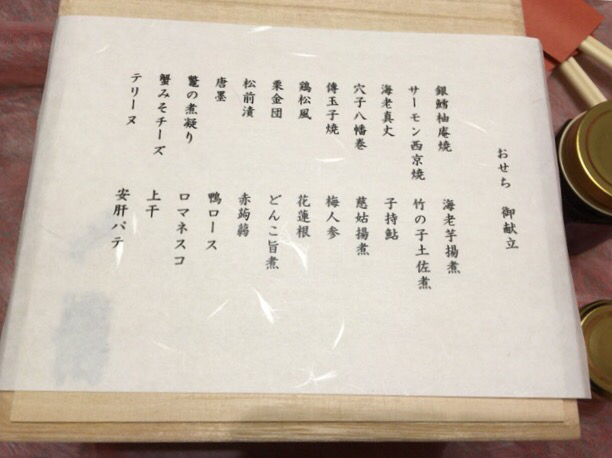 おせち 御献立
銀鱈柚庵焼
サーモン西京焼
海老真丈
穴子八幡巻
傳玉子焼
鶏松風
栗金団
松前漬
唐墨
鼈の煮凝り
蟹みそチーズ
テリーヌ
海老芋揚煮
竹の子土佐煮
子持鮎
慈姑揚煮
梅人参
花蓮根
どんこ旨煮
赤蒟蒻
鴨ロース
ロマネスコ
上干
安肝パテ